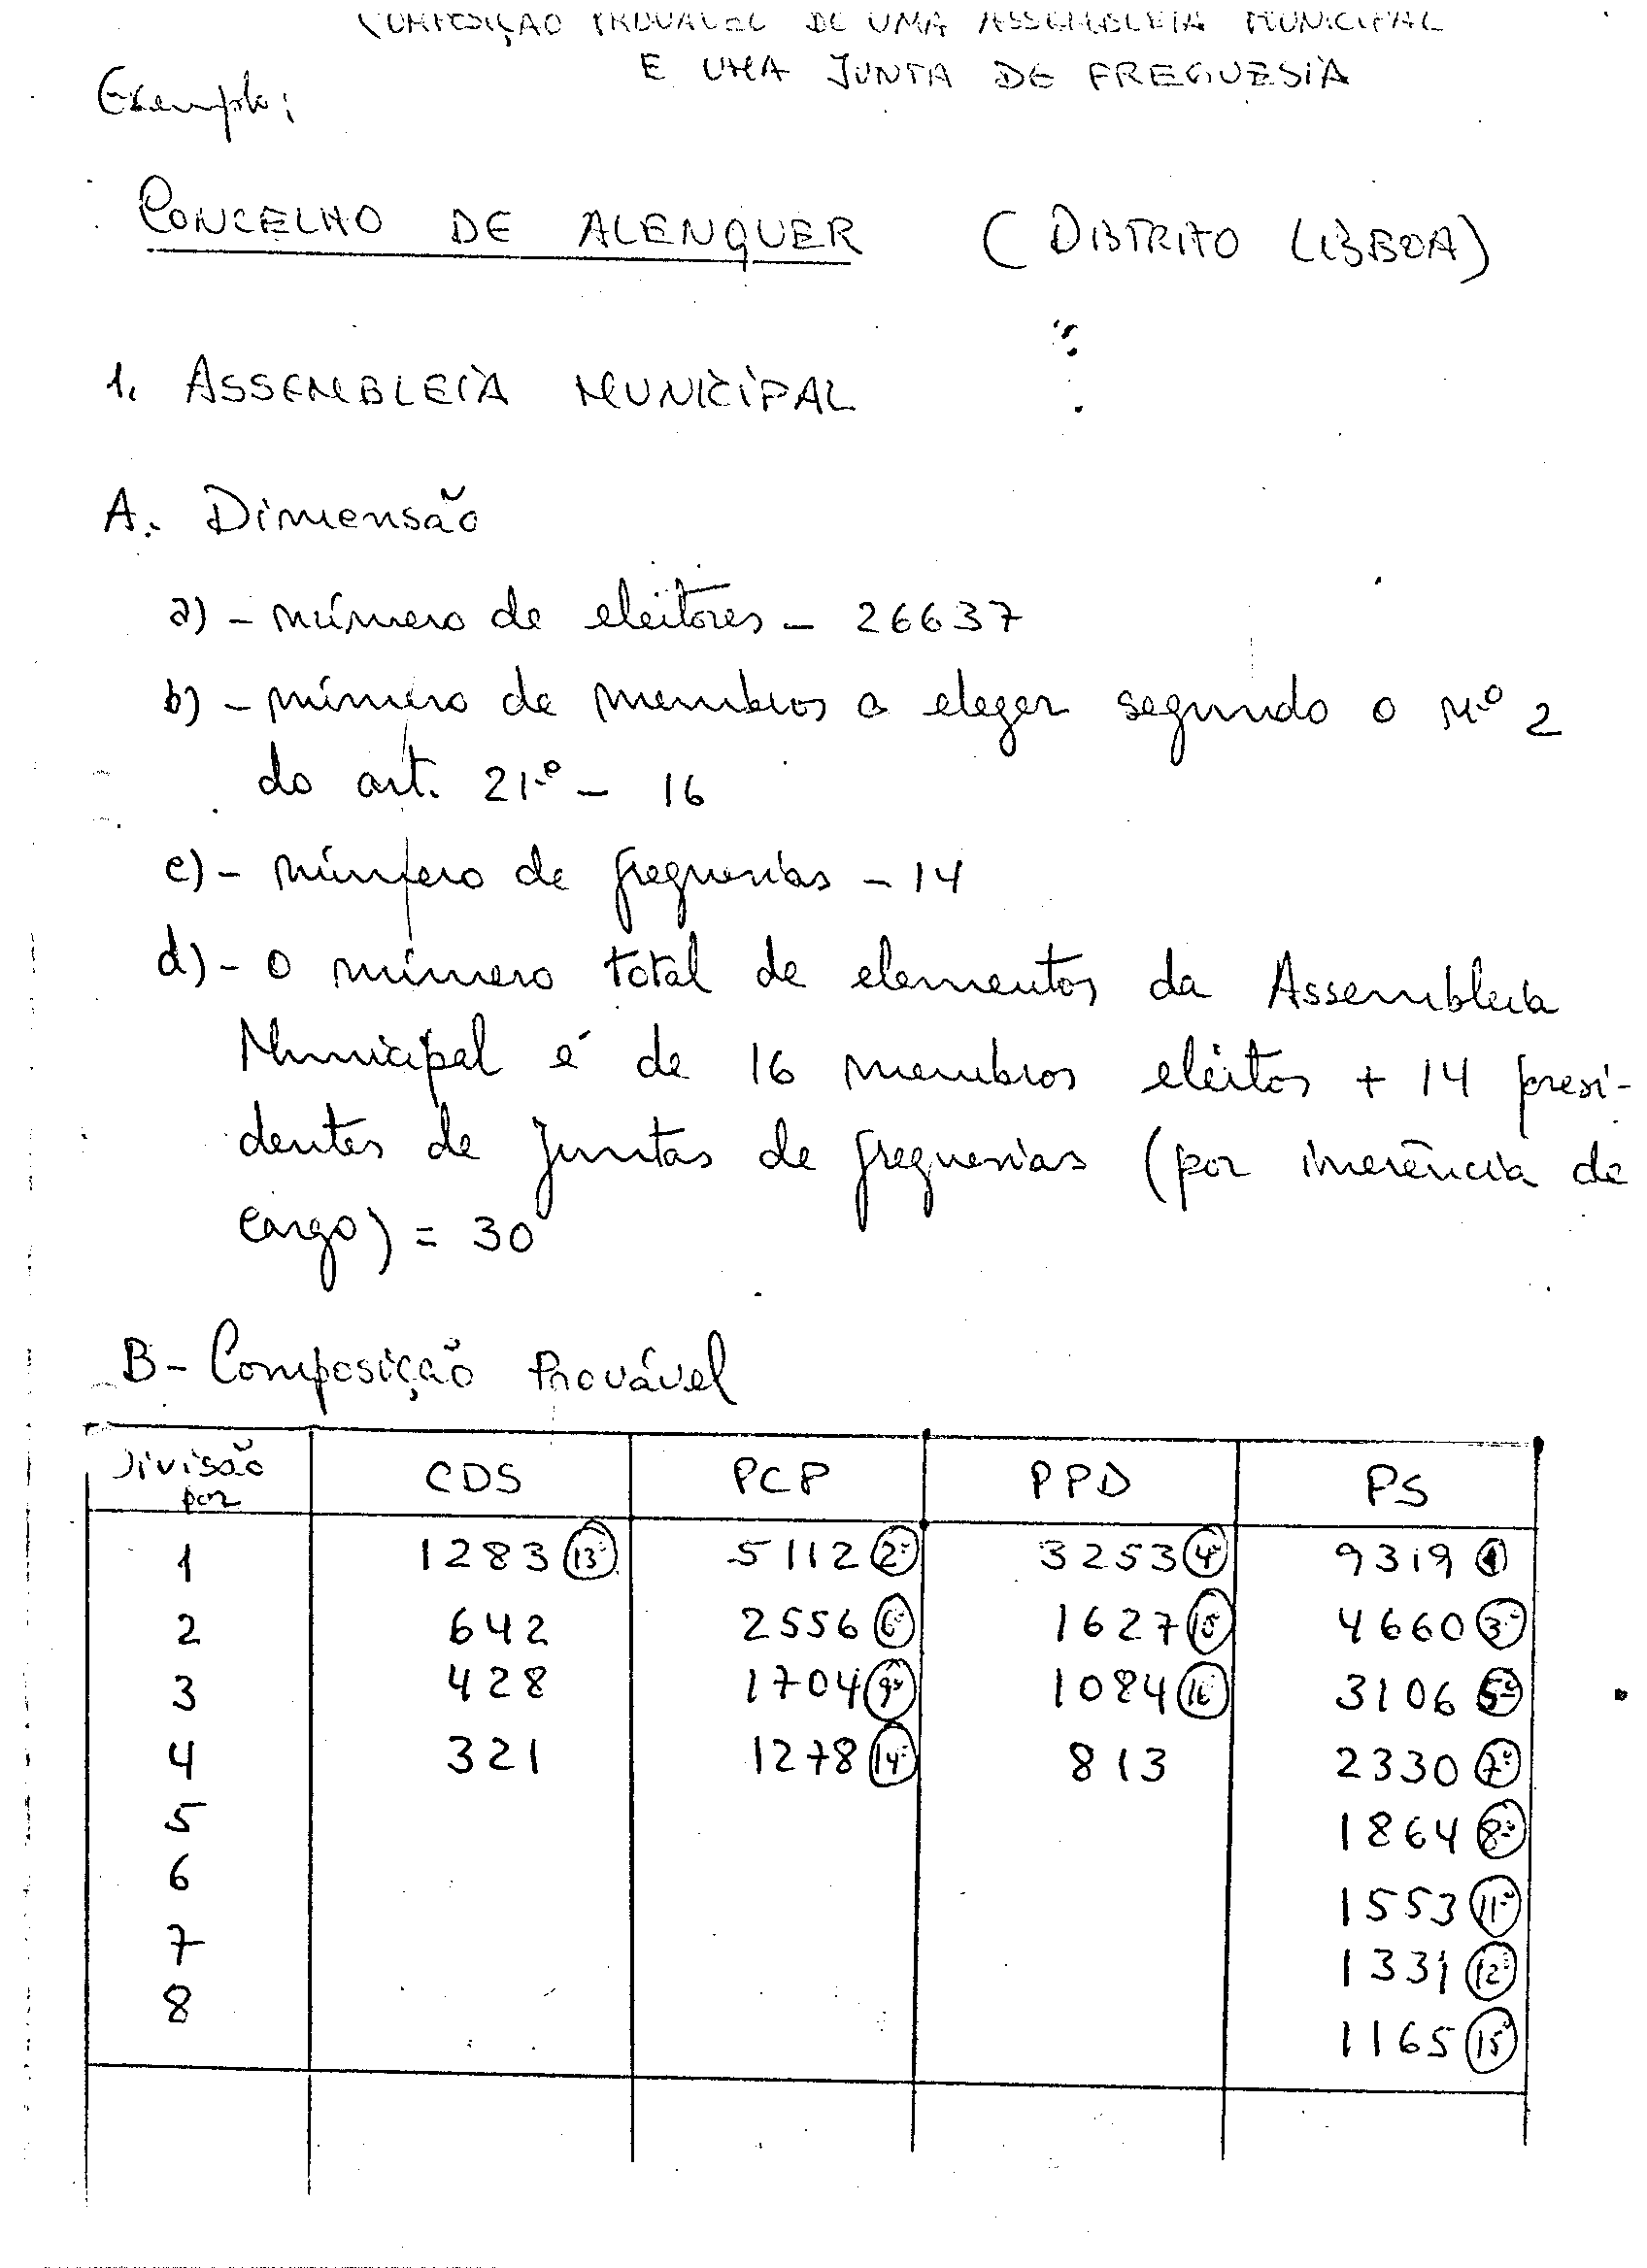 COMPOSIÇÃO PROVÁVEL DE UMA ASSEMBLEIA MUNICIPAL
E UMA JUNTA DE FREGUESIA
Exemplo:
CONCELHO DE ALENQUER (DISTRITO LISBOA)
1. ASSEMBLEIA MUNICIPAL
A. Dimensão
a) - número de eleitores - 26637
b) - número de membros a eleger segundo o n.º 2
do art. 21.º - 16
c) - número de freguesias - 14
d) - O número total de elementos da Assembleia
Municipal é de 16 membros eleitos + 14 presi-
dentes de juntas de freguesias (por inerência de
cargo) = 30
B - Composição Provável
Divisão por CDS PCP PPD PS
1 1283 13º 5112 2º 3253 4º 9319 1
2 642 2556 6º 1627 4660 3º
3 428 1704 9º 1084 16 3106 5º
4 321 1278 14º 813 2330 7º
5 1864 8º
6 1553 11º
7 1331 12º
8 1165 15º